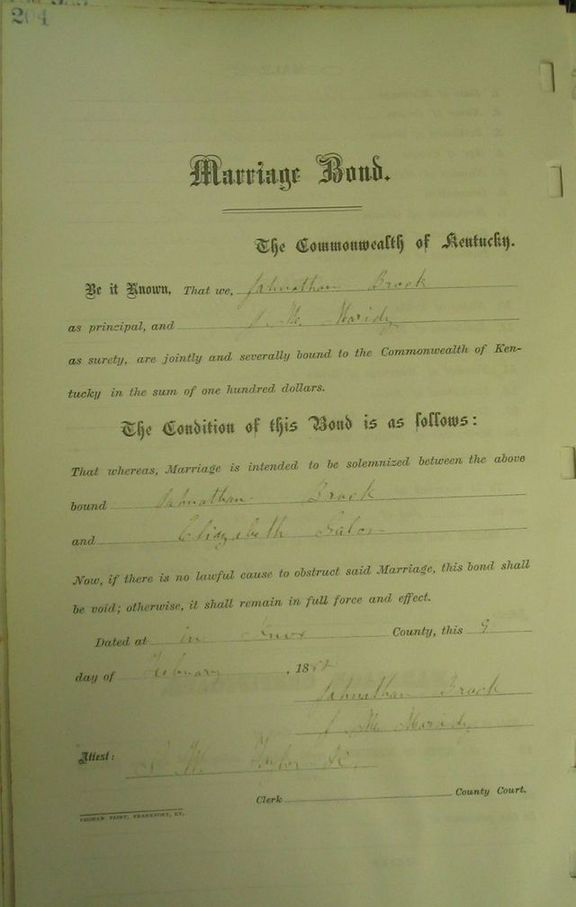 204
Marriage Bond.
The Commonwealth of Kentucky.
Be it Known, That we, Johnathan Brock
as principal, and J. M.
as surety, are jointly and severally bound to the Commonwealth of Ken-
tucky in the sum of one hundred dollars.
The Condition of this Bond is as follows:
That whereas, Marriage is intended to be solemnized between the above
bound Johnathan Brock
and Elizabeth
Now, if there is no lawful cause to obstruct said Marriage, this bond shall
be void; otherwise, it shall remain in full force and effect.
Dated at in Knox County, this 9
day of February, 18
Johnathan Brock
J M.
Attest: W.
Clerk County Court.
YEOMAN PRINT, FRANKFORT, KY.